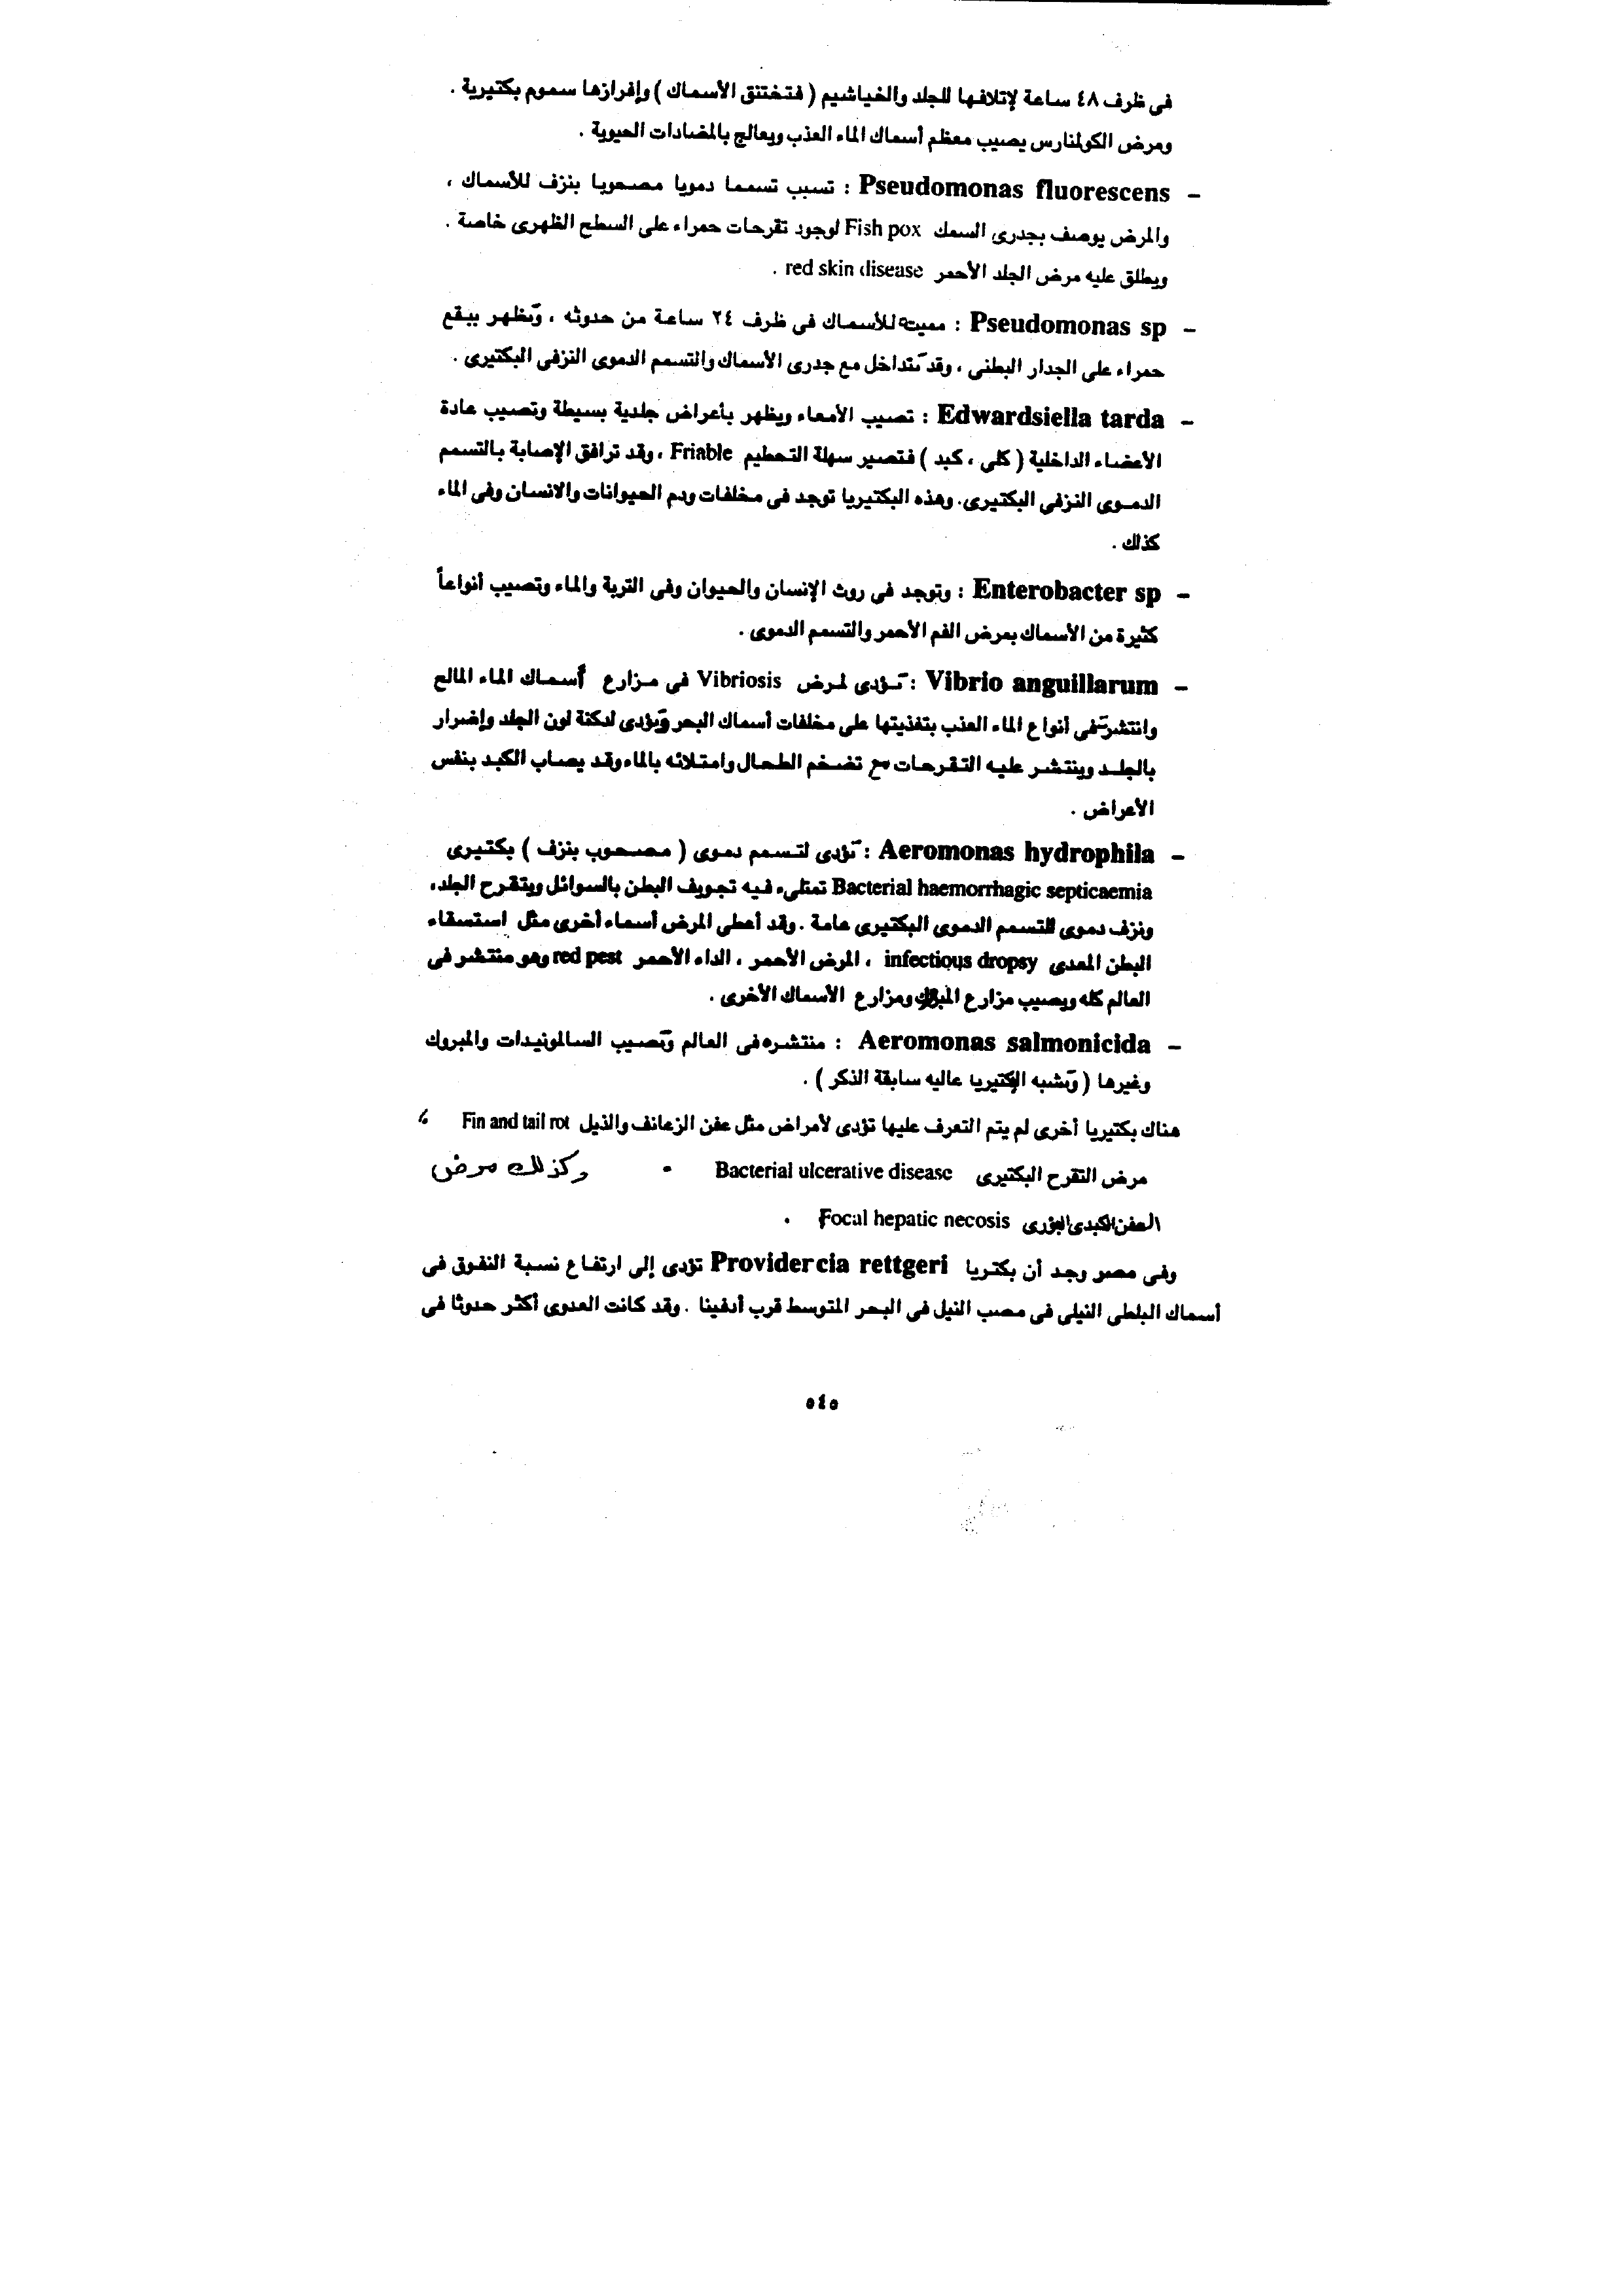 فى ظرف ٤٨ ساعة لإتلافها للجلد والخياشيم ( فتختنق الأسماك ) وإفرازها سموم بكتيرية .
ومرض الكولمنارس يصيب معظم أسماك الماء العذب ويعالج بالمضادات الحيوية .
– Pseudomonas fluorescens : تسبب تسمما دمويا مصحوبا بنزف للأسماك ،
والمرض يوصف بجدرى السمك Fish pox لوجود تقرحات حمراء على السطح الظهرى خاصة .
ويطلق عليه مرض الجلد الأحمر red skin disease .
– Pseudomonas sp : مميته للأسماك فى ظرف ٢٤ ساعة من حدوثه ، وتظهر ببقع
حمراء على الجدار البطنى ، وقد تتداخل مع جدرى الأسماك والتسمم الدموى النزفى البكتيرى .
– Edwardsiella tarda : تصيب الأمعاء ويظهر بأعراض جلدية بسيطة وتصيب عادة
الأعضاء الداخلية ( كلى ، كبد ) فتصير سهلة التحطيم Friable ، وقد ترافق الإصابة بالتسمم
الدموى النزفى البكتيرى. وهذه البكتيريا توجد فى مخلفات ودم الحيوانات والانسان وفى الماء
كذلك .
– Enterobacter sp : وتوجد فى روث الإنسان والحيوان وفى التربة والماء وتصيب أنواعاً
كثيرة من الأسماك بمرض الفم الأحمر والتسمم الدموى .
– Vibrio anguillarum : تؤدى لمرض Vibriosis فى مزارع أسماك الماء المالح
وانتشرت فى أنواع الماء العذب بتغذيتها على مخلفات أسماك البحر وتؤدى لدكنة لون الجلد وإضرار
بالجلد وينتشر عليه التقرحات مع تضخم الطحال وامتلائه بالماء وقد يصاب الكبد بنفس
الأعراض .
– Aeromonas hydrophila : تؤدى لتسمم دموى ( مصحوب بنزف ) بكتيرى
Bacterial haemorrhagic septicaemia تمتلىء فيه تجويف البطن بالسوائل ويتقرح الجلد،
ونزف دموى للتسمم الدموى البكتيرى عامة . وقد أعطى المرض أسماء أخرى مثل استسقاء
البطن المعدى infectious dropsy ، المرض الأحمر ، الداء الأحمر red pest وهو منتشر فى
العالم كله ويصيب مزارع المبروك ومزارع الأسماك الأخرى .
– Aeromonas salmonicida : منتشره فى العالم وتصيب السالمونيدات والمبروك
وغيرها ( وتشبه البكتيريا عاليه سابقة الذكر ) .
هناك بكتيريا أخرى لم يتم التعرف عليها تؤدى لأمراض مثل عفن الزعانف والذيل Fin and tail rot ،
مرض التقرح البكتيرى Bacterial ulcerative disease . وكذلك مرض
العفن الكبدى البؤرى Focal hepatic necosis .
وفى مصر وجد أن بكتريا Providercia rettgeri تؤدى إلى ارتفاع نسبة النفوق فى
أسماك البلطى النيلى فى مصب النيل فى البحر المتوسط قرب أدفينا . وقد كانت العدوى أكثر حدوثا فى
٥٤٥